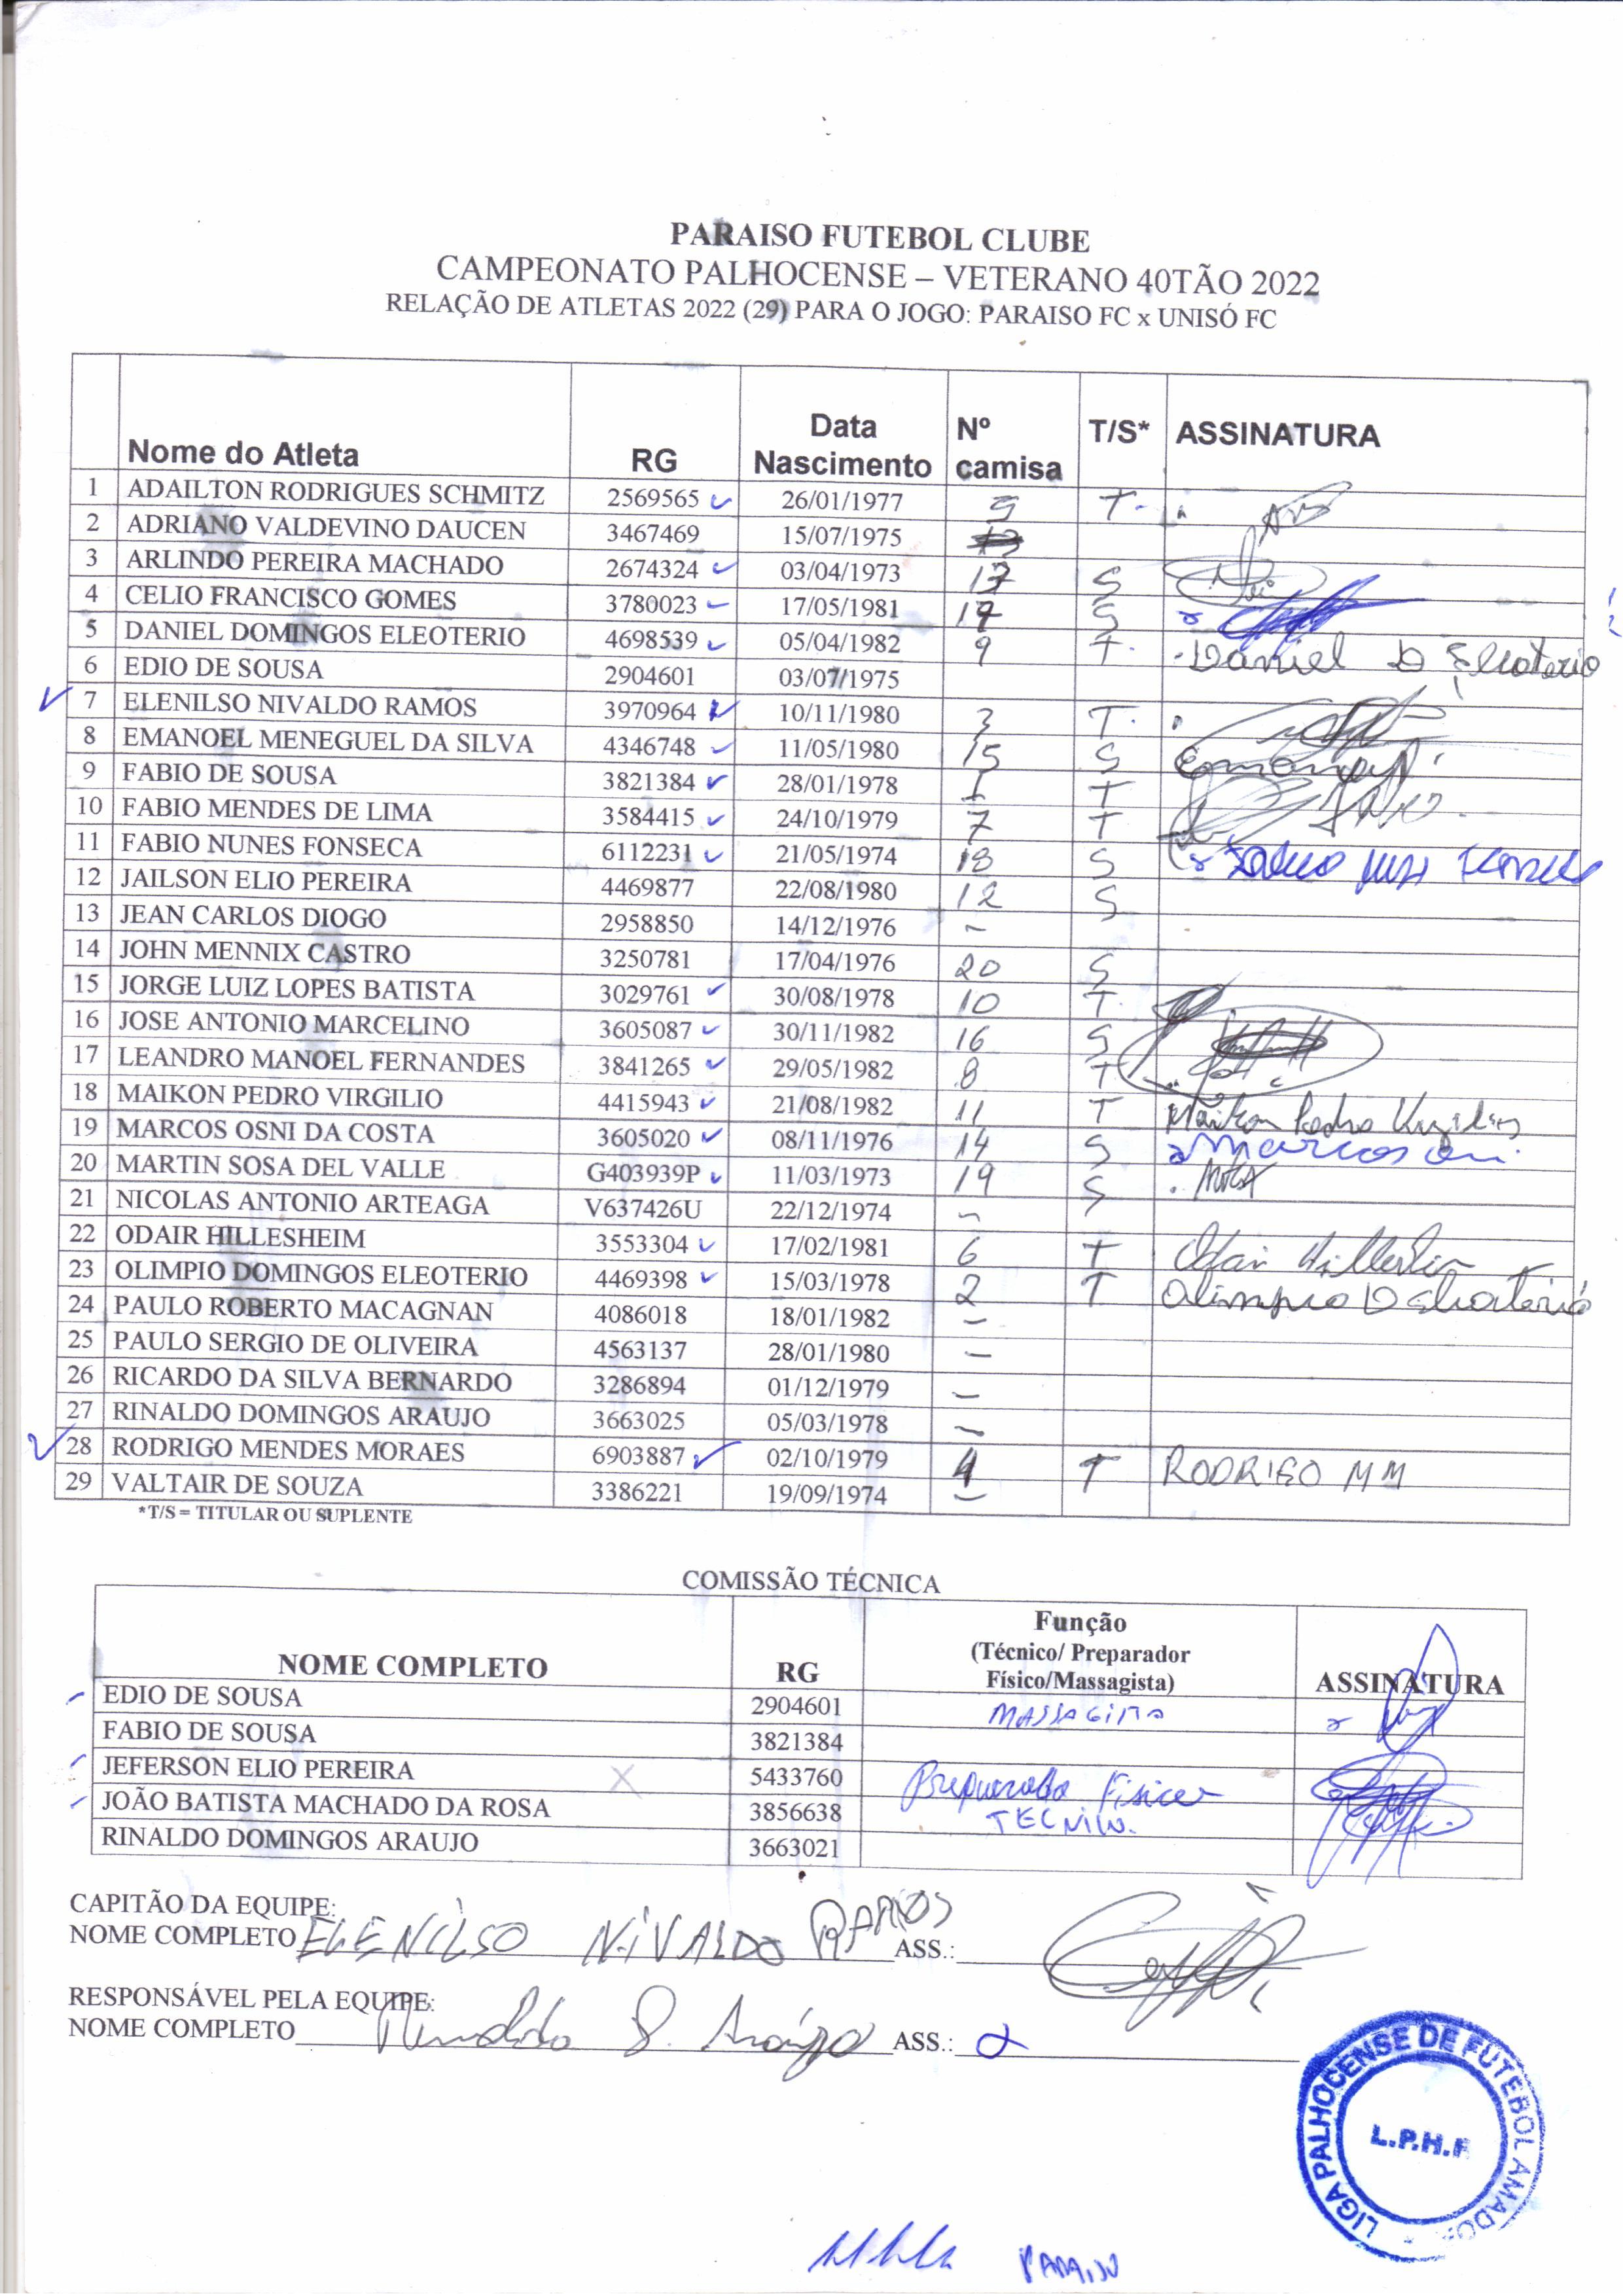 PARAISO FUTEBOL CLUBE
CAMPEONATO PALHOCENSE – VETERANO 40TÃO 2022
RELAÇÃO DE ATLETAS 2022 (29) PARA O JOGO: PARAISO FC x UNISÓ FC
Nome do Atleta RG Data Nascimento Nº camisa T/S* ASSINATURA
1 ADAILTON RODRIGUES SCHMITZ 2569565 26/01/1977 T
2 ADRIANO VALDEVINO DAUCEN 3467469 15/07/1975
3 ARLINDO PEREIRA MACHADO 2674324 03/04/1973 S
4 CELIO FRANCISCO GOMES 3780023 17/05/1981 17 S
5 DANIEL DOMINGOS ELEOTERIO 4698539 05/04/1982 9 T Daniel D Eleoterio
6 EDIO DE SOUSA 2904601 03/07/1975
7 ELENILSO NIVALDO RAMOS 3970964 10/11/1980 3 T
8 EMANOEL MENEGUEL DA SILVA 4346748 11/05/1980 15 S
9 FABIO DE SOUSA 3821384 28/01/1978 1 T
10 FABIO MENDES DE LIMA 3584415 24/10/1979 7 T
11 FABIO NUNES FONSECA 6112231 21/05/1974 18 S
12 JAILSON ELIO PEREIRA 4469877 22/08/1980 12 S
13 JEAN CARLOS DIOGO 2958850 14/12/1976 –
14 JOHN MENNIX CASTRO 3250781 17/04/1976 20 S
15 JORGE LUIZ LOPES BATISTA 3029761 30/08/1978 10 T
16 JOSE ANTONIO MARCELINO 3605087 30/11/1982 16 S
17 LEANDRO MANOEL FERNANDES 3841265 29/05/1982 8 T
18 MAIKON PEDRO VIRGILIO 4415943 21/08/1982 11 T Maikon Pedro Virgilio
19 MARCOS OSNI DA COSTA 3605020 08/11/1976 14 S Marcos
20 MARTIN SOSA DEL VALLE G403939P 11/03/1973 19 S
21 NICOLAS ANTONIO ARTEAGA V637426U 22/12/1974 –
22 ODAIR HILLESHEIM 3553304 17/02/1981 6 T Odair Hillesheim
23 OLIMPIO DOMINGOS ELEOTERIO 4469398 15/03/1978 2 T Olimpio D Eleoterio
24 PAULO ROBERTO MACAGNAN 4086018 18/01/1982 –
25 PAULO SERGIO DE OLIVEIRA 4563137 28/01/1980 –
26 RICARDO DA SILVA BERNARDO 3286894 01/12/1979 –
27 RINALDO DOMINGOS ARAUJO 3663025 05/03/1978 –
28 RODRIGO MENDES MORAES 6903887 02/10/1979 4 T RODRIGO MM
29 VALTAIR DE SOUZA 3386221 19/09/1974 –
*T/S = TITULAR OU SUPLENTE
COMISSÃO TÉCNICA
NOME COMPLETO RG Função (Técnico/ Preparador Físico/Massagista) ASSINATURA
EDIO DE SOUSA 2904601 MASSAGISTA
FABIO DE SOUSA 3821384
JEFERSON ELIO PEREIRA X 5433760 Preparado Fisico
JOÃO BATISTA MACHADO DA ROSA 3856638 TECNICO.
RINALDO DOMINGOS ARAUJO 3663021
CAPITÃO DA EQUIPE:
NOME COMPLETO ELENILSO NIVALDO RAMOS ASS.:
RESPONSÁVEL PELA EQUIPE:
NOME COMPLETO Rinaldo D. Araújo ASS.:
LIGA PALHOCENSE DE FUTEBOL AMADOR
L.P.H.F
PARAISO